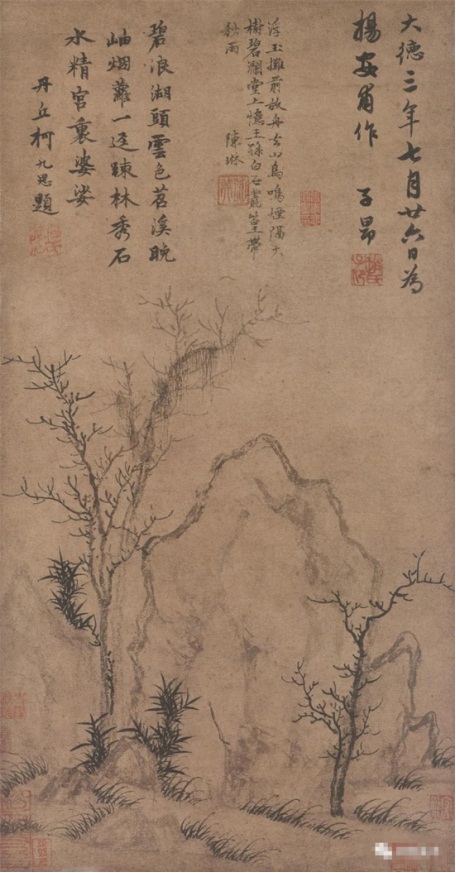 大德三年七月廿六日為
楊安甫作 子昂
浮玉灘前放舟去山鳥鳴煙隔大
樹碧瀾堂上憶王孫白石叢篁帶
秋雨 陳琳
碧浪湖頭雲色苕溪晚
岫烟蘿一逕踈林秀石
水精宮裏婆娑
丹丘柯九思題